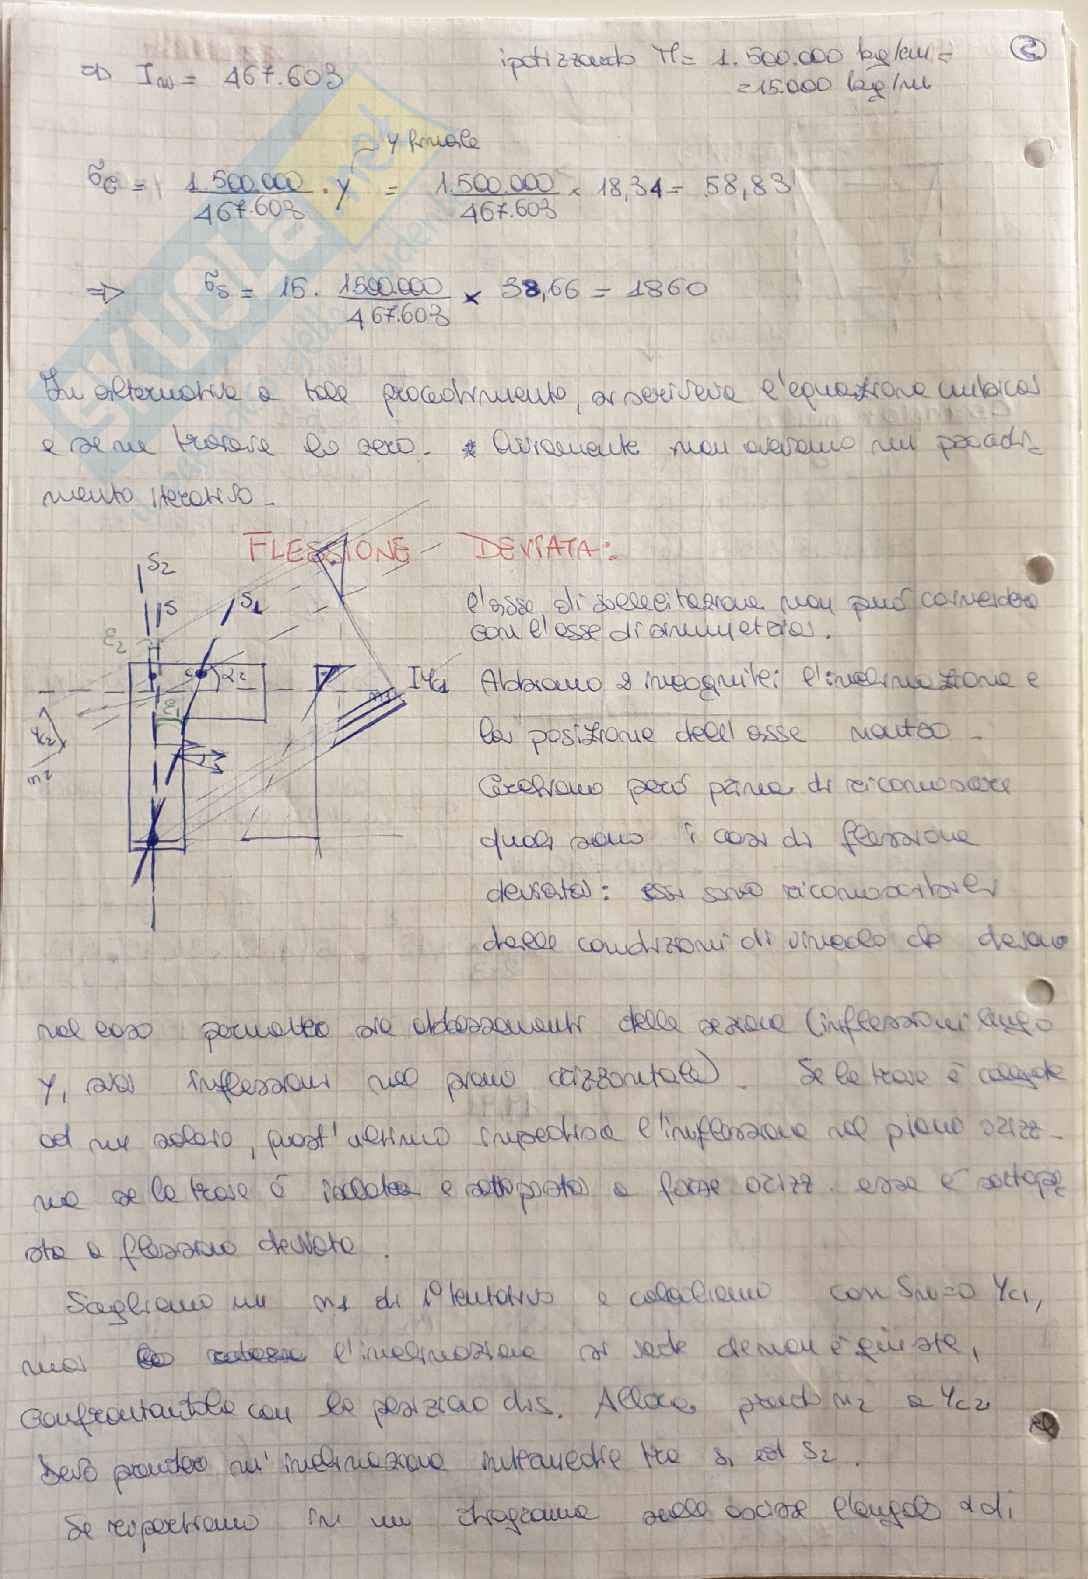 ⇒ In = 467.603 ipotizzando M = 1.500.000 kg/cm = ②
= 15.000 kg/m
y finale
σc = 1.500.000 / 467.603 · y = 1.500.000 / 467.603 × 18,34 = 58,83
⇒ σs = 15 · 1500.000 / 467.603 × 38,66 = 1860
In alternativa a tale procedimento, si scriveva l'equazione cubica
e se ne trovava lo zero. Ovviamente non avevamo un procedi-
mento iterativo.
FLESSIONE DEVIATA:
S2
S
S1
l'asse di sollecitazione non può coincidere
con l'asse di simmetria.
Abbiamo 2 incognite: l'inclinazione e
la posizione dell'asse neutro.
n2
Cerchiamo però prima di riconoscere
quali siano i casi di flessione
deviata: essi sono riconoscibili
dalle condizioni di vincolo che devono
nel caso permettere sia abbassamenti della sezione (inflessioni lungo
y, sia inflessioni nel piano orizzontale). Se la trave è
ad un solaio, quest'ultimo impedisce l'inflessione nel piano orizz.
ma se la trave è isolata e sottoposta a forze orizz. essa è sottopo
sta a flessione deviata.
Scegliamo un n1 di 1° tentativo e calcoliamo con Sn=0 yc1,
ma l'inclinazione si vede che non è giusta,
confrontandola con la posizione di s. Allora prendo n2 a yc2
Devo prendere un'inclinazione intermedia tra s1 ed s2.
Se riportiamo in un diagramma sulle ascisse l'angolo α di